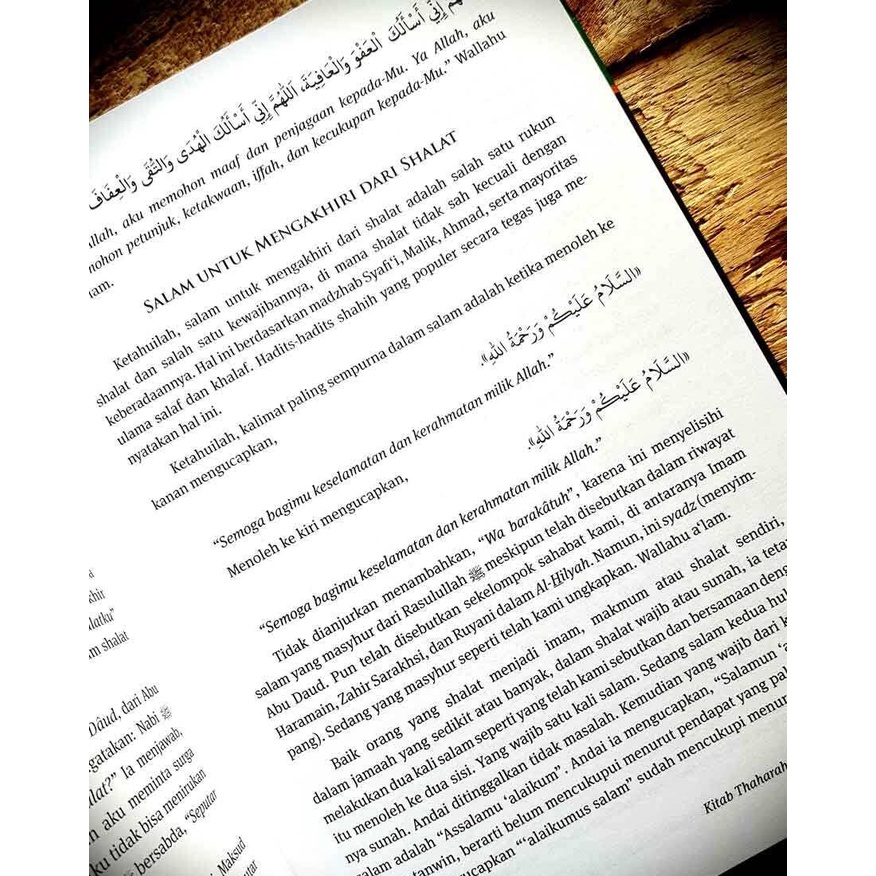 إِنِّي أَسْأَلُكَ الْعَفْوَ وَالْعَافِيَةَ، اَللّٰهُمَّ إِنِّي أَسْأَلُكَ الْهُدَى وَالتُّقَى وَالْعِفَافَ
aku memohon maaf dan penjagaan kepada-Mu. Ya Allah, aku
petunjuk, ketakwaan, iffah, dan kecukupan kepada-Mu." Wallahu
SALAM UNTUK MENGAKHIRI DARI SHALAT
Ketahuilah, salam untuk mengakhiri dari shalat adalah salah satu rukun
shalat dan salah satu kewajibannya, di mana shalat tidak sah kecuali dengan
keberadaannya. Hal ini berdasarkan madzhab Syafi'i, Malik, Ahmad, serta mayoritas
ulama salaf dan khalaf. Hadits-hadits shahih yang populer secara tegas juga me-
nyatakan hal ini.
Ketahuilah, kalimat paling sempurna dalam salam adalah ketika menoleh ke
kanan mengucapkan,
«السَّلَامُ عَلَيْكُمْ وَرَحْمَةُ اللهِ».
"Semoga bagimu keselamatan dan kerahmatan milik Allah."
Menoleh ke kiri mengucapkan,
«السَّلَامُ عَلَيْكُمْ وَرَحْمَةُ اللهِ».
"Semoga bagimu keselamatan dan kerahmatan milik Allah."
Tidak dianjurkan menambahkan, "Wa barakâtuh", karena ini menyelisihi
salam yang masyhur dari Rasulullah ﷺ meskipun telah disebutkan dalam riwayat
Abu Daud. Pun telah disebutkan sekelompok sahabat kami, di antaranya Imam
Haramain, Zahir Sarakhsi, dan Ruyani dalam Al-Hilyah. Namun, ini syadz (menyim-
pang). Sedang yang masyhur seperti telah kami ungkapkan. Wallahu a'lam.
Baik orang yang shalat menjadi imam, makmum atau shalat sendiri,
dalam jamaah yang sedikit atau banyak, dalam shalat wajib atau sunah, ia
melakukan dua kali salam seperti yang telah kami sebutkan dan bersamaan
itu menoleh ke dua sisi. Yang wajib satu kali salam. Sedang salam kedua
nya sunah. Andai ditinggalkan tidak masalah. Kemudian yang wajib dari
salam adalah "Assalamu 'alaikum". Andai ia mengucapkan, "Salamun
tanwin, berarti belum mencukupi menurut pendapat yang
"'alaikumus salam" sudah mencukupi
Kitab Thaharah
shalat
Dâud, dari Abu
Nabi ﷺ
Ia menjawab,
aku meminta surga
tidak bisa menirukan
ﷺ bersabda, "Seputar
Maksud